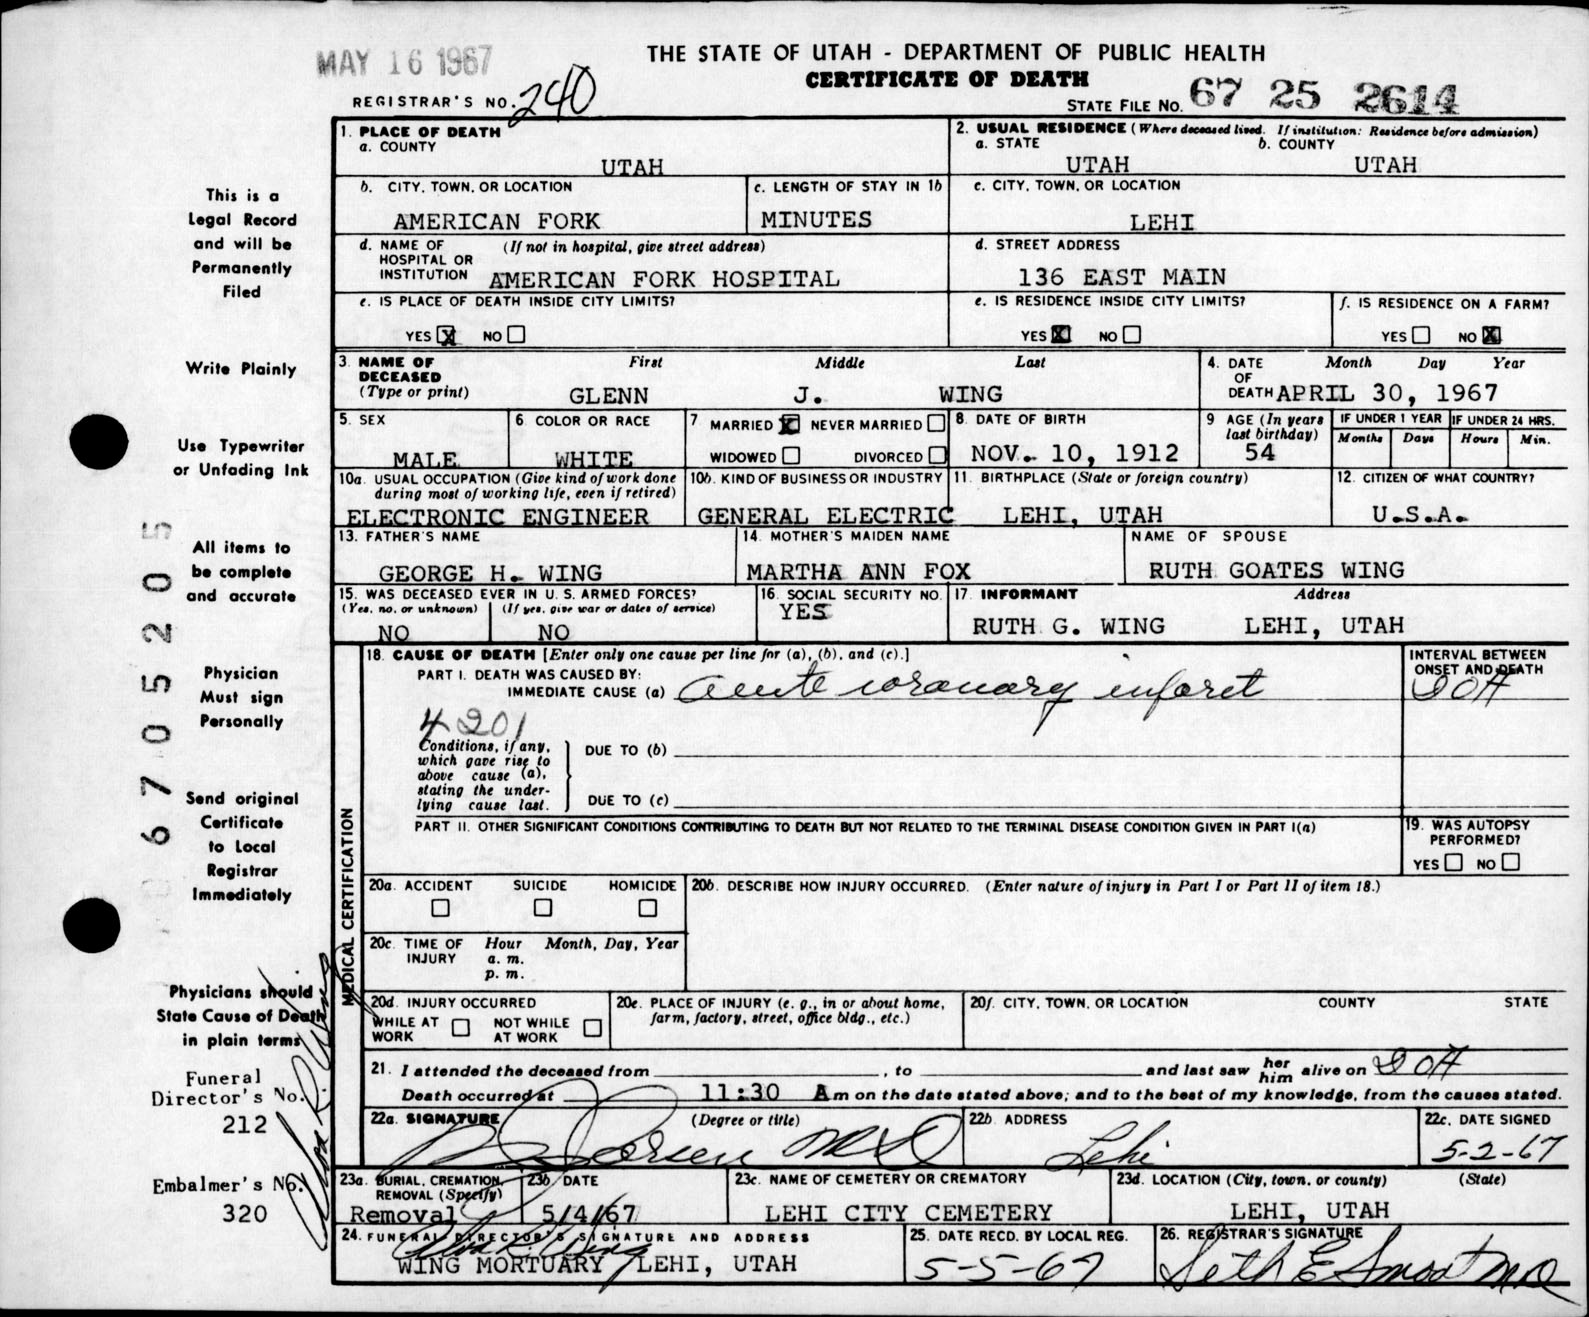 MAY 16 1967
THE STATE OF UTAH - DEPARTMENT OF PUBLIC HEALTH
CERTIFICATE OF DEATH
REGISTRAR'S NO. 240
STATE FILE NO. 67 25 2614
1. PLACE OF DEATH
a. COUNTY
UTAH
2. USUAL RESIDENCE (Where deceased lived. If institution: Residence before admission)
a. STATE b. COUNTY
UTAH UTAH
b. CITY, TOWN, OR LOCATION
AMERICAN FORK
c. LENGTH OF STAY IN 1b
MINUTES
c. CITY, TOWN, OR LOCATION
LEHI
d. NAME OF HOSPITAL OR INSTITUTION (If not in hospital, give street address)
AMERICAN FORK HOSPITAL
d. STREET ADDRESS
136 EAST MAIN
e. IS PLACE OF DEATH INSIDE CITY LIMITS?
YES X NO
e. IS RESIDENCE INSIDE CITY LIMITS?
YES X NO
f. IS RESIDENCE ON A FARM?
YES NO X
3. NAME OF DECEASED (Type or print)
First Middle Last
GLENN J. WING
4. DATE OF DEATH Month Day Year
APRIL 30, 1967
5. SEX
MALE
6 COLOR OR RACE
WHITE
7 MARRIED X NEVER MARRIED
WIDOWED DIVORCED
8. DATE OF BIRTH
NOV. 10, 1912
9 AGE (In years last birthday)
54
IF UNDER 1 YEAR
Months Days
IF UNDER 24 HRS.
Hours Min.
10a. USUAL OCCUPATION (Give kind of work done during most of working life, even if retired)
ELECTRONIC ENGINEER
10b. KIND OF BUSINESS OR INDUSTRY
GENERAL ELECTRIC
11. BIRTHPLACE (State or foreign country)
LEHI, UTAH
12. CITIZEN OF WHAT COUNTRY?
U.S.A.
13. FATHER'S NAME
GEORGE H. WING
14. MOTHER'S MAIDEN NAME
MARTHA ANN FOX
NAME OF SPOUSE
RUTH GOATES WING
15. WAS DECEASED EVER IN U. S. ARMED FORCES?
(Yes, no, or unknown) (If yes, give war or dates of service)
NO NO
16. SOCIAL SECURITY NO.
YES
17. INFORMANT Address
RUTH G. WING LEHI, UTAH
MEDICAL CERTIFICATION
18. CAUSE OF DEATH [Enter only one cause per line for (a), (b), and (c).]
INTERVAL BETWEEN ONSET AND DEATH
PART I. DEATH WAS CAUSED BY:
IMMEDIATE CAUSE (a) acute coronary infarct DOA
4201
Conditions, if any, which gave rise to above cause (a), stating the underlying cause last.
DUE TO (b)
DUE TO (c)
PART II. OTHER SIGNIFICANT CONDITIONS CONTRIBUTING TO DEATH BUT NOT RELATED TO THE TERMINAL DISEASE CONDITION GIVEN IN PART I(a)
19. WAS AUTOPSY PERFORMED?
YES NO
20a. ACCIDENT SUICIDE HOMICIDE
20b. DESCRIBE HOW INJURY OCCURRED. (Enter nature of injury in Part I or Part II of item 18.)
20c. TIME OF INJURY Hour Month, Day, Year
a. m.
p. m.
20d. INJURY OCCURRED
WHILE AT WORK NOT WHILE AT WORK
20e. PLACE OF INJURY (e. g., in or about home, farm, factory, street, office bldg., etc.)
20f. CITY, TOWN, OR LOCATION COUNTY STATE
21. I attended the deceased from , to and last saw her him alive on DOA
Death occurred at 11:30 A m on the date stated above; and to the best of my knowledge, from the causes stated.
22a. SIGNATURE (Degree or title)
Larsen MD
22b. ADDRESS
Lehi
22c. DATE SIGNED
5-2-67
23a. BURIAL, CREMATION, REMOVAL (Specify)
Removal
23b. DATE
5/4/67
23c. NAME OF CEMETERY OR CREMATORY
LEHI CITY CEMETERY
23d. LOCATION (City, town, or county) (State)
LEHI, UTAH
24. FUNERAL DIRECTOR'S SIGNATURE AND ADDRESS
Alva R. Wing
WING MORTUARY LEHI, UTAH
25. DATE RECD. BY LOCAL REG.
5-5-67
26. REGISTRAR'S SIGNATURE
Seth E Smoot MD
This is a
Legal Record
and will be
Permanently
Filed
Write Plainly
Use Typewriter
or Unfading Ink
All items to
be complete
and accurate
Physician
Must sign
Personally
Send original
Certificate
to Local
Registrar
Immediately
Physicians should
State Cause of Death
in plain terms
Funeral
Director's No.
212
Embalmer's No.
320
Alva R. Wing
067052050 5